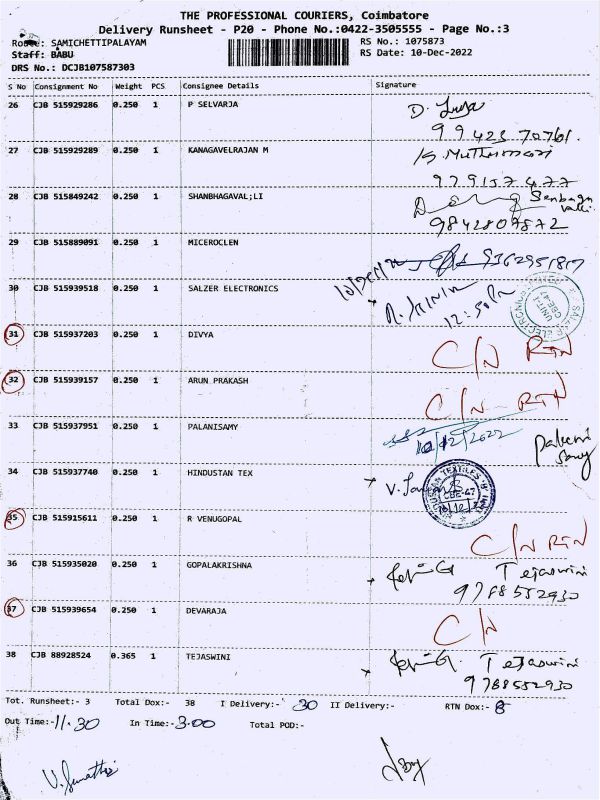 THE PROFESSIONAL COURIERS, Coimbatore
Delivery Runsheet - P20 - Phone No.:0422-3505555 - Page No.:3
Route: SAMICHETTIPALAYAM
RS No.: 1075873
Staff: BABU
RS Date: 10-Dec-2022
DRS No.: DCJB107587303
S No Consignment No Weight PCS Consignee Details Signature
26 CJB 515929286 0.250 1 P SELVARJA
99423 70761.
27 CJB 515929289 0.250 1 KANAGAVELRAJAN M K. Muthumari
979157477
28 CJB 515849242 0.250 1 SHANBHAGAVAL;LI Senbaga Valli
9842807872
29 CJB 515889091 0.250 1 MICEROCLEN 9362951817
30 CJB 515939518 0.250 1 SALZER ELECTRONICS
12:50 Pm
UNIT-I
CBE-47
31 CJB 515937203 0.250 1 DIVYA C/N RTN
32 CJB 515939157 0.250 1 ARUN PRAKASH C/N RTN
33 CJB 515937951 0.250 1 PALANISAMY 10/12/2022
34 CJB 515937740 0.250 1 HINDUSTAN TEX
CBE-47
35 CJB 515915611 0.250 1 R VENUGOPAL C/N RTN
36 CJB 515935020 0.250 1 GOPALAKRISHNA Tejaswini
9788552930
37 CJB 515939654 0.250 1 DEVARAJA C/N
38 CJB 88928524 0.365 1 TEJASWINI Tejaswini
9788552930
Tot. Runsheet:- 3 Total Dox:- 38 I Delivery:- 30 II Delivery:- RTN Dox:- 8
Out Time:- 11.30 In Time:- 3.00 Total POD:-